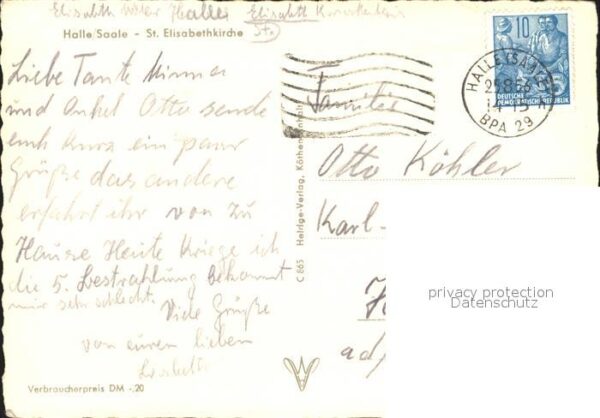 Elisabeth Halle Elisabeth Krankenhaus
Sta.
Halle/Saale - St. Elisabethkirche
Liebe Tante Minna
und Onkel Otto sende
euch kurz ein paar
Grüße das andere
erfahrt ihr von zu
Hause Heute kriege ich
die 5. Bestrahlung bekommt
mir sehr schlecht.
Viele Grüße
von euren lieben
Verbraucherpreis DM -,20
C 865 Heldge-Verlag, Köthen/Anhalt
10
DEUTSCHE
DEMOKRATISCHE REPUBLIK
HALLE (SAALE)
BPA 29
Familie
Otto Köhler
Karl-
privacy protection
Datenschutz